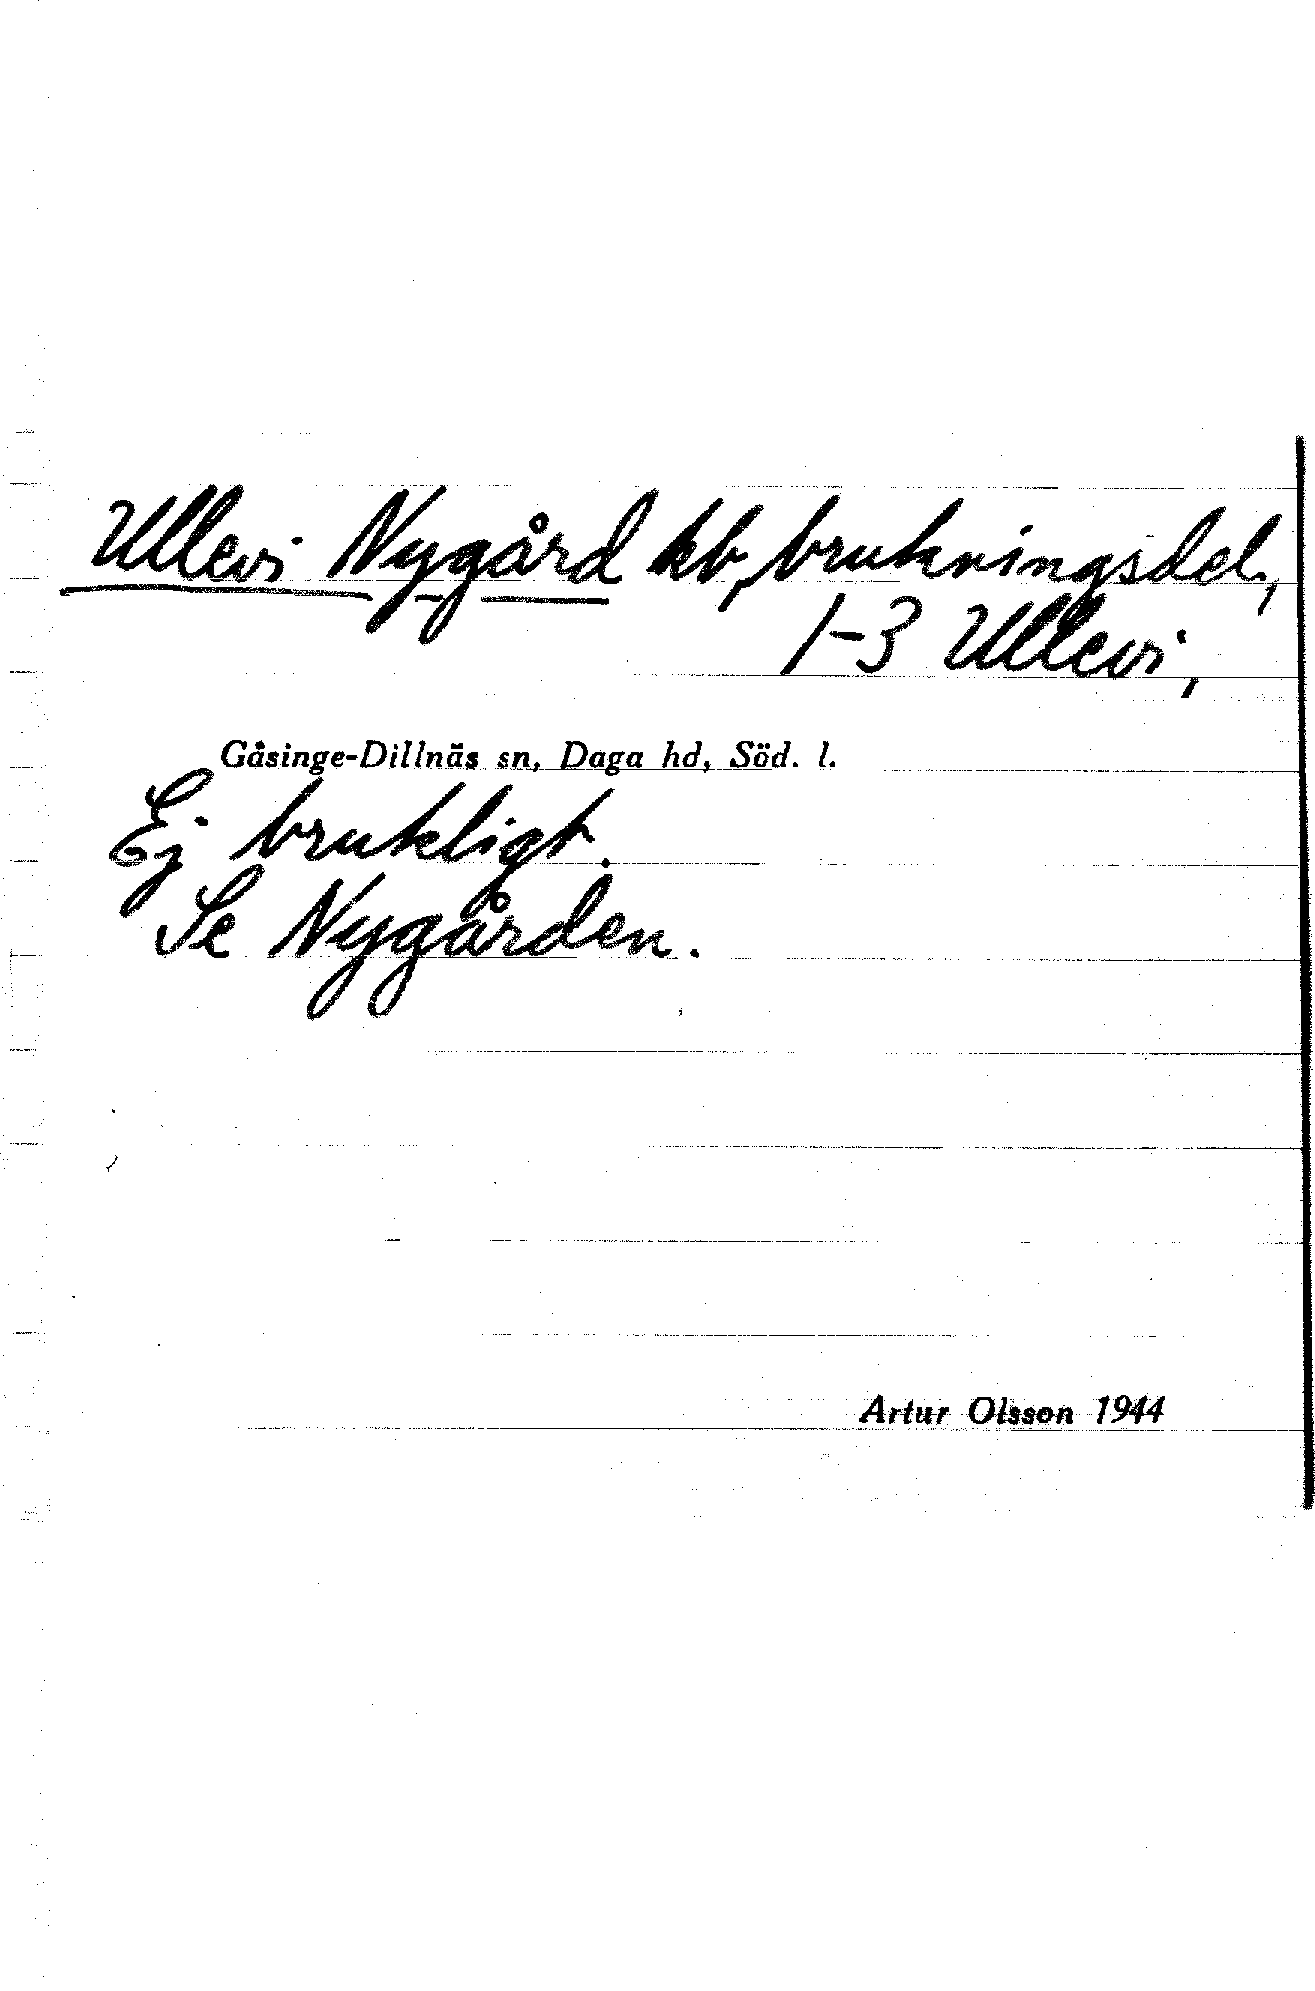 Ullevi Nygård kb, brukningsdel,
1-3 Ullevi,
Gåsinge-Dillnäs sn, Daga hd, Söd. l.
Ej brukligt.
Se Nygården.
Artur Olsson 1944